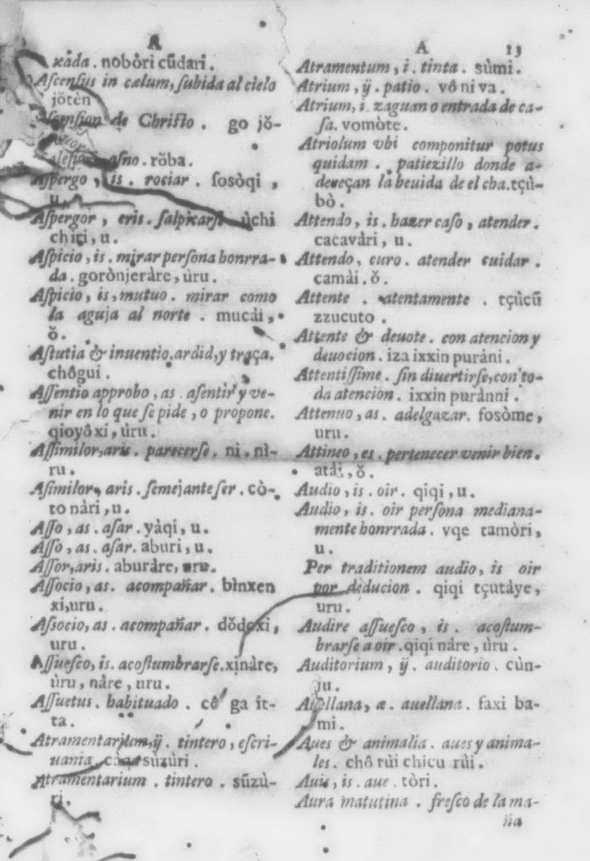 A
xada. nobòri cūdari.
Ascensus in cælum, subida al cielo
jŏtèn
de Christo. go jŏ-
asno. rŏba.
Aspergo, is. rociar. sosòqi,
u.
Aspergor, eris. salpicarse ùchi
chiri, u.
Aspicio, is. mirar persona honrra-
da. gorònjeràre, ùru.
Aspicio, is, mutuo. mirar como
la aguja al norte. mucài,
ŏ.
Astutia & inuentio. ardid, y traça.
chôgui.
Assentio approbo, as. asentir y ve-
nir en lo que se pide, o propone.
qioyôxi, ùru.
Assimilor, aris. parecerse. ni, nì-
ru.
Asimilor, aris. semejante ser. cò-
to nàri, u.
Asso, as. asar. yàqi, u.
Asso, as. asar. aburi, u.
Assor, aris. aburàre, uru.
Associo, as. acompañar. bìnxen
xi, uru.
Asocio, as. acompañar. dŏdŏxi,
uru.
Assuesco, is. acostumbrarse. xinàre,
ùru, nàre, uru.
Assuetus. habituado. cô ga ît-
ta.
Atramentarium, ÿ. tintero, escri-
uania. sùzùri.
Atramentarium. tintero. sūzù-
ri.
A 13
Atramentum, i. tinta. sùmi.
Atrium, ÿ. patio. vô ni va.
Atrium, i. zaguan o entrada de ca-
sa. vomòte.
Atriolum vbi componitur potus
quidam. patiezillo donde a-
dereçan la beuida de el cha. tçù-
bò.
Attendo, is. hazer caso, atender.
cacavàri, u.
Attendo, curo. atender cuidar.
camài. ŏ.
Attente. atentamente. tçùcū
zzucuto.
Attente & deuote. con atencion y
deuocion. iza ixxin puràni.
Attentissime. sin diuertirse, con to-
da atencion. ixxin purànni.
Attenuo, as. adelgazar. fosòme,
uru.
Attineo, es. pertenecer venir bien.
atài, ŏ.
Audio, is. oir. qiqi, u.
Audio, is. oir persona mediana-
mente honrrada. vqe tamòri,
u.
Per traditionem audio, is oir
por deducion. qiqi tçutàye,
uru.
Audire assuesco, is. acostum-
brarse a oir. qiqi nàre, ùru.
Auditorium, ÿ. auditorio. cùn-
ju.
Auellana, æ. auellana. faxi ba-
mi.
Aues & animalia. aues y anima-
les. chô rùi chicu rùi.
Auis, is. aue. tòri.
Aura matutina. fresco de la ma-
ña